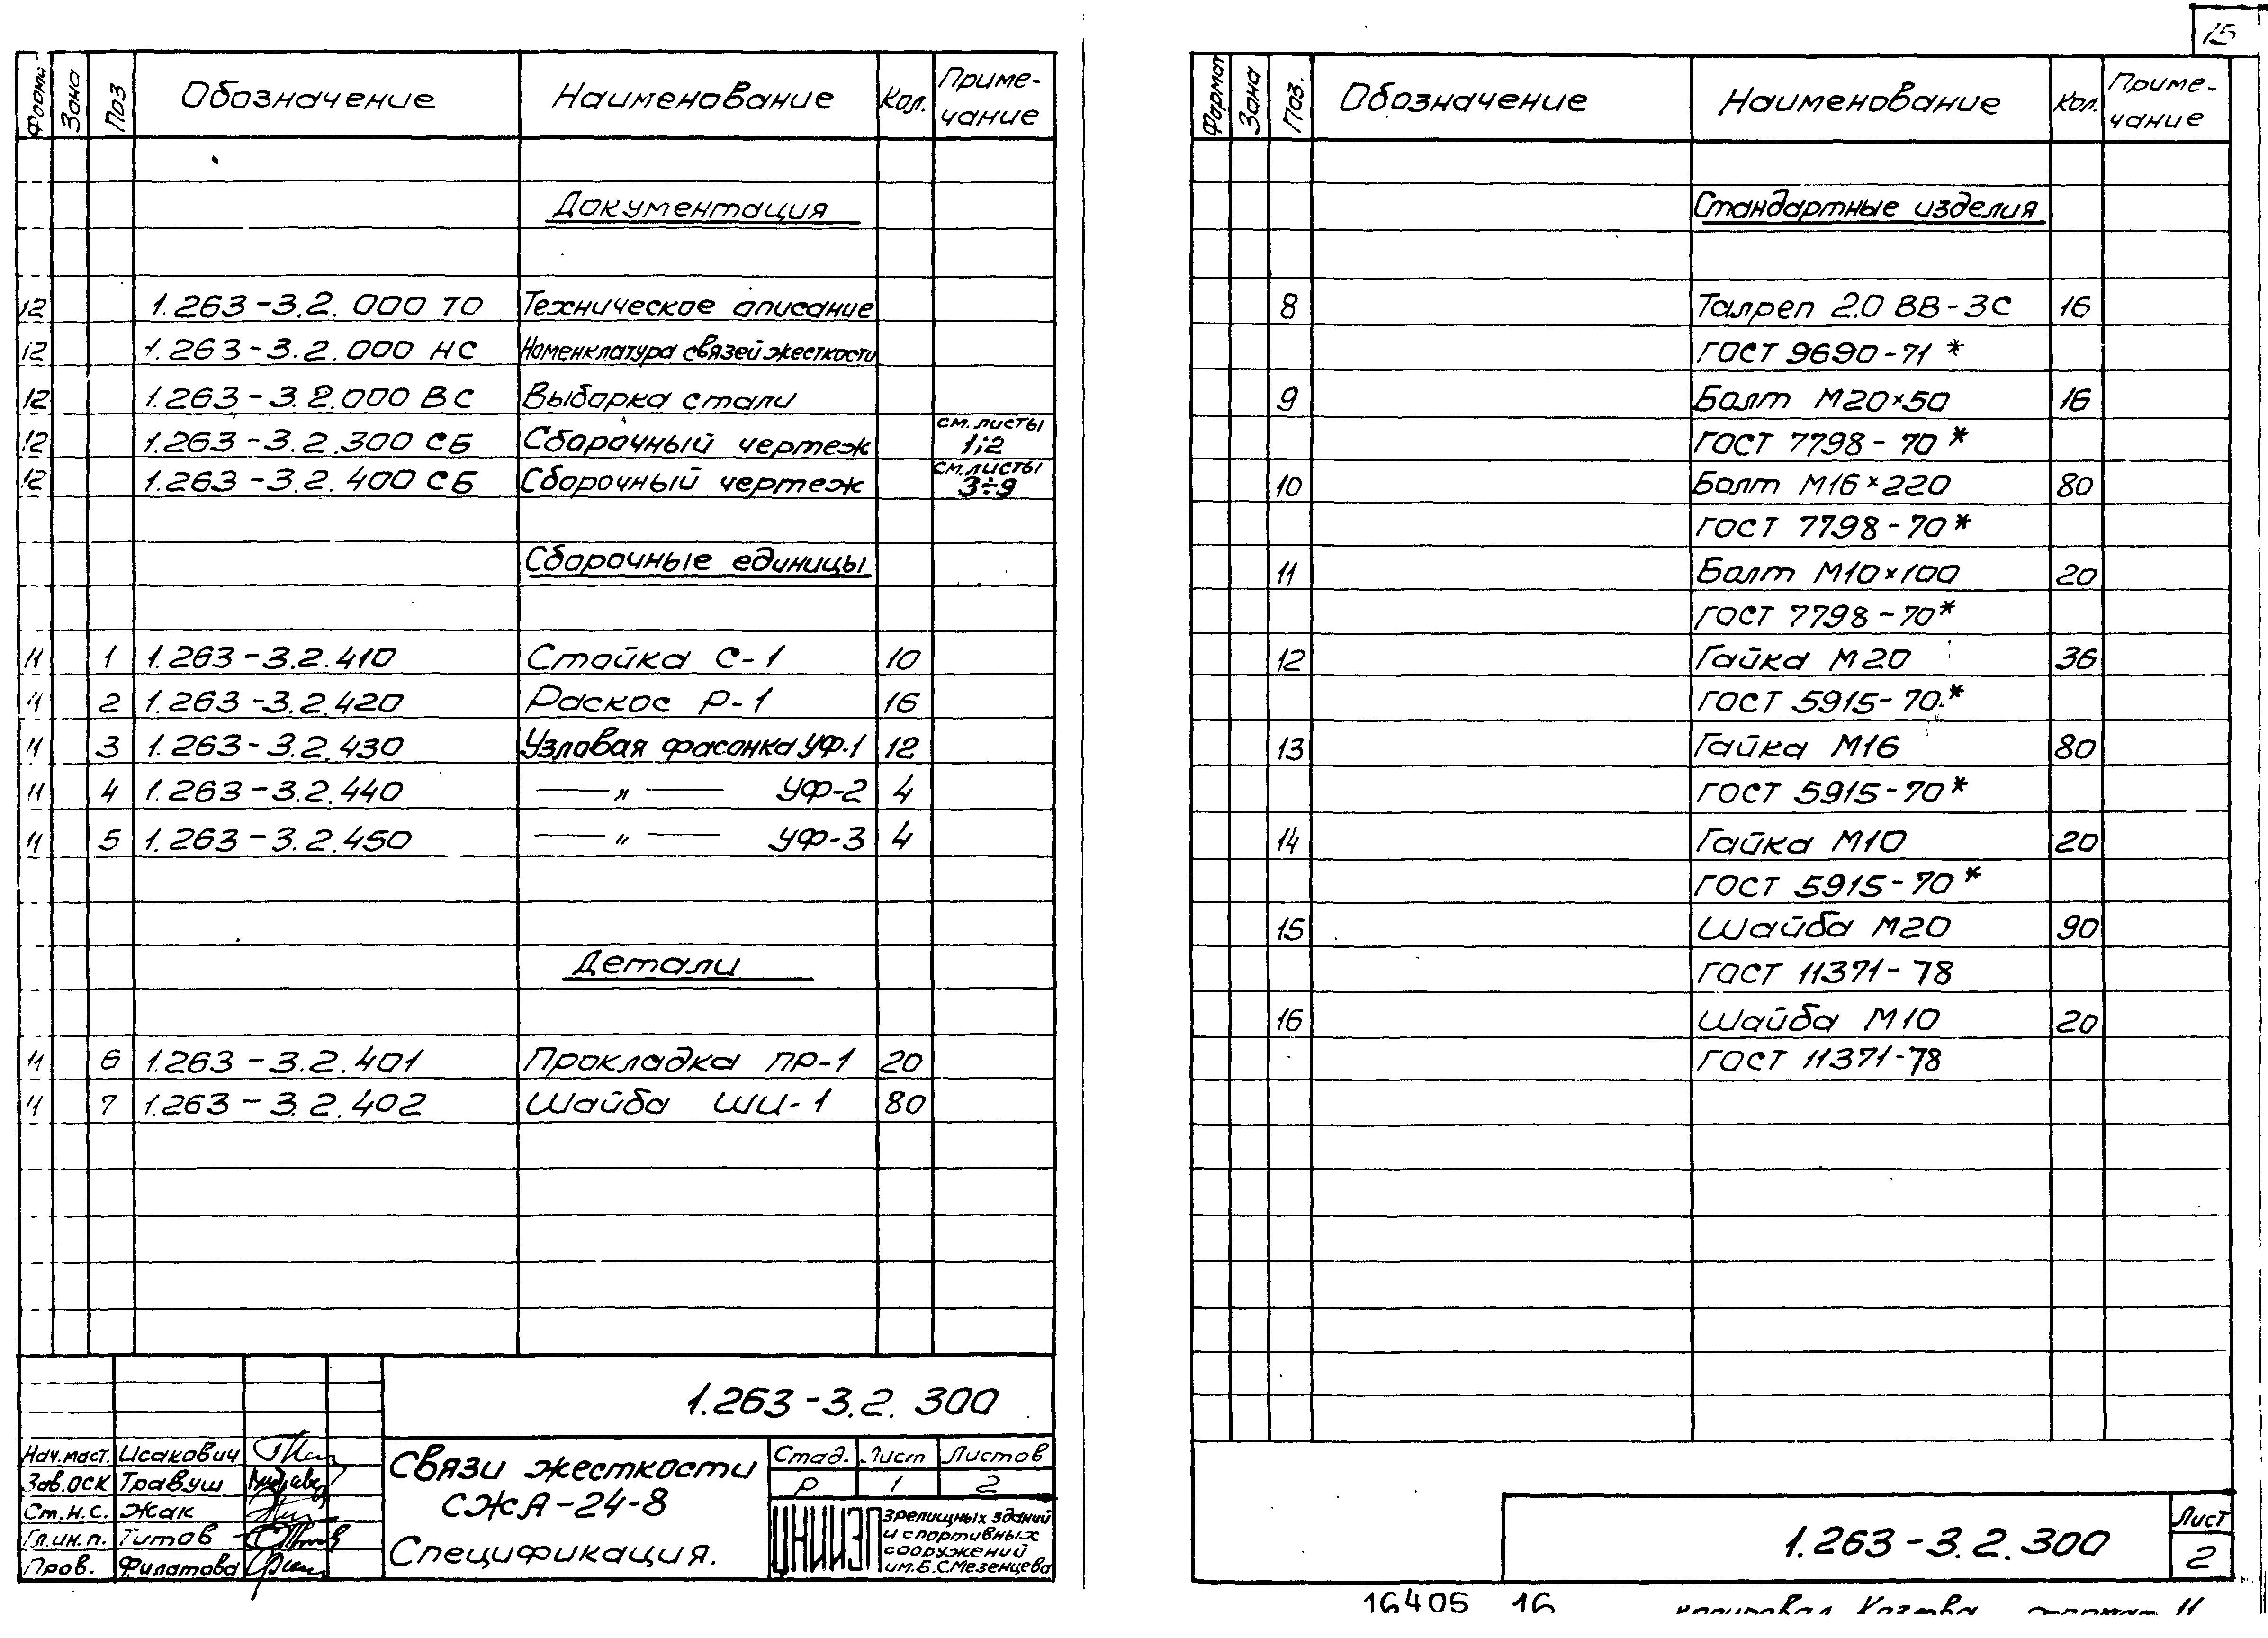 Форма Зона Поз Обозначение Наименование Кол. Приме-
чание
Документация
12 1.263-3.2.000 ТО Техническое описание
12 1.263-3.2.000 НС Номенклатура связей жесткости
12 1.263-3.2.000 ВС Выборка стали
12 1.263-3.2.300 СБ Сборочный чертеж см. листы 1;2
12 1.263-3.2.400 СБ Сборочный чертеж см. листы 3÷9
Сборочные единицы
11 1 1.263-3.2.410 Стойка С-1 10
11 2 1.263-3.2.420 Раскос Р-1 16
11 3 1.263-3.2.430 Узловая фасонка УФ-1 12
11 4 1.263-3.2.440 — „ — УФ-2 4
11 5 1.263-3.2.450 — „ — УФ-3 4
Детали
11 6 1.263-3.2.401 Прокладка ПР-1 20
11 7 1.263-3.2.402 Шайба ШИ-1 80
1.263-3.2.300
Нач.маст. Исакович
Зав.ОСК Травуш
Ст.н.с. Жак
Гл.ин.п. Титов
Пров. Филатова
Связи жесткости
СЖА-24-8
Спецификация.
Стад. Лист Листов
Р 1 2
ЦНИИЭП зрелищных зданий
и спортивных
сооружений
им.Б.С.Мезенцева
15
Формат Зона Поз. Обозначение Наименование Кол. Приме-
чание
Стандартные изделия
8 Талреп 2.0 ВВ-3С 16
ГОСТ 9690-71*
9 Болт М20×50 16
ГОСТ 7798-70*
10 Болт М16×220 80
ГОСТ 7798-70*
11 Болт М10×100 20
ГОСТ 7798-70*
12 Гайка М20 36
ГОСТ 5915-70.*
13 Гайка М16 80
ГОСТ 5915-70*
14 Гайка М10 20
ГОСТ 5915-70*
15 Шайба М20 90
ГОСТ 11371-78
16 Шайба М10 20
ГОСТ 11371-78
1.263-3.2.300
Лист
2
16405 16 копировал формат 11